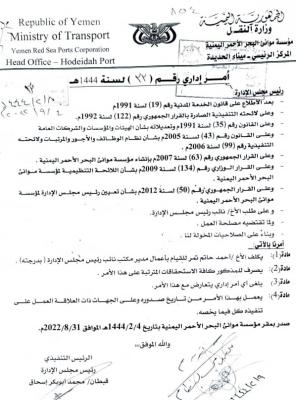 الجمهورية اليمنية
وزارة النقل
مؤسسة موانئ البحر الأحمر اليمنية
المركز الرئيسي - ميناء الحديدة
Republic of Yemen
Ministry of Transport
Yemen Red Sea Ports Corporation
Head Office – Hodeidah Port
أمر إداري رقم (    ) لسنة 1444هـ
رئيس مجلس الإدارة:
- بعد الاطلاع على قانون الخدمة المدنية رقم (19) لسنة 1991م
- وعلى لائحته التنفيذية الصادرة بالقرار الجمهوري رقم (122) لسنة 1992م.
- وعلى القانون رقم (35) لسنة 1991م وتعديلاته بشأن الهيئات والمؤسسات والشركات العامة
- وعلى القانون رقم (43) لسنة 2005م بشأن نظام الوظائف والأجور والمرتبات ولائحته
التنفيذية رقم (99) لسنة 2006م.
- وعلى القرار الجمهوري رقم (63) لسنة 2007م بإنشاء مؤسسة موانئ البحر الأحمر اليمنية.
- وعلى القرار الوزاري رقم (134) لسنة 2009م بشأن اللائحة التنظيمية لمؤسسة موانئ
البحر الأحمر اليمنية.
- وعلى القرار الجمهوري رقم (50) لسنة 2012م بشأن تعيين رئيس مجلس الإدارة لمؤسسة
موانئ البحر الأحمر اليمنية.
- وعلى طلب الأخ/ نائب رئيس مجلس الإدارة.
- ولما تقتضيه مصلحة العمل.
- وبناءً على الصلاحيات المخولة لنا.
أمرنا بالآتي
مادة(1): يكلف الأخ/ احمد حاتم نمر للقيام بأعمال مدير مكتب نائب رئيس مجلس الإدارة (بدرجته).
مادة(2): يصرف للمذكور كافة الاستحقاقات المترتبة على هذا الأمر.
مادة(3): يلغى أي أمر إداري يتعارض مع هذا الأمر.
مادة(4): يعمل بهذا الأمر من تاريخ صدوره وعلى الجهات ذات العلاقة العمل على
تنفيذه كل فيما يخصه.
صدر بمقر مؤسسة موانئ البحر الأحمر اليمنية بتاريخ 1444/2/4هـ الموافق 2022/8/31م.
والله الموفق،،
الرئيس التنفيذي
رئيس مجلس الإدارة
قبطان/ محمد أبوبكر إسحاق